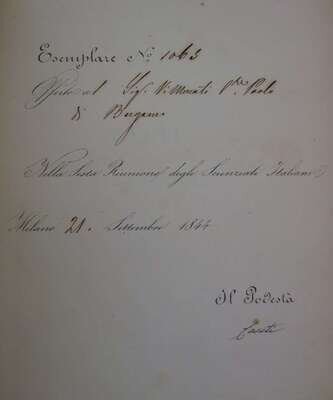 Esemplare No. 1063
Offerto al Sig.
di Bergamo
Nella Sesta Riunione degli Scienziati Italiani
Milano 21. Settembre 1844
Il Podestà